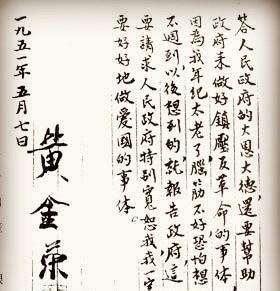 答人民政府的大恩大德,還要幫助
政府來做好鎮壓反革命的事体
因為我年紀太老了,腦筋不好恐怕想
不週到以後想到的,就報告政府,這
要請求人民政府特別寬恕我我一定
要好好地做愛國的事体。
一九五一年五月七日
黃金榮